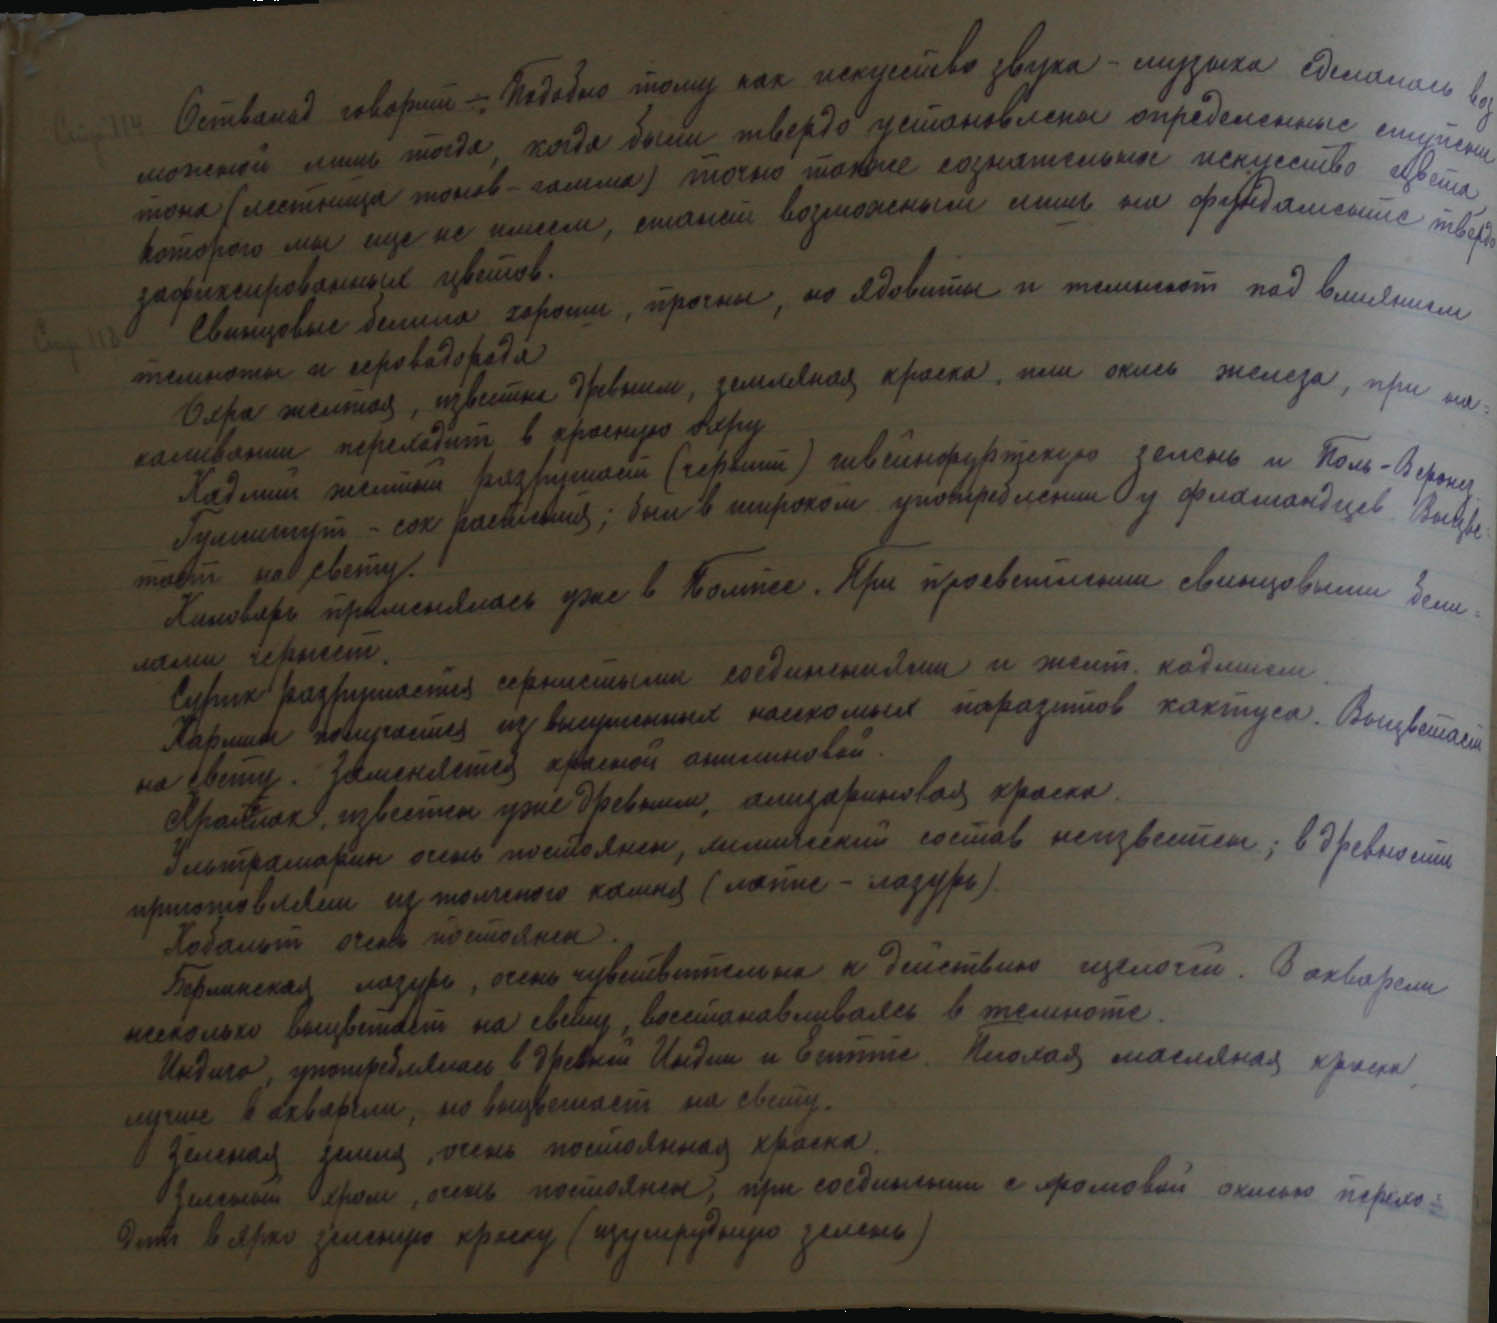 Стр 114 Оствальд говорит ÷ Подобно тому как искусство звука – музыка сделалась воз
можной лишь тогда, когда были твердо установлены определенные ступени
тона (лестница тонов – гамма) точно также сознательное искусство цвета,
которого мы еще не имеем, станет возможным лишь на фундаменте твердо
зафиксированных цветов.
Стр 118 Свинцовые белила хороши, прочны, но ядовиты и темнеют под влиянием
темноты и сероводорода
Охра желтая, известна древним, земляная краска, или окись железа, при на=
каливании переходит в красную охру
Кадмий желтый разрушает (чернит) швейнфуртскую зелень и Поль-Веронез.
Гуммигут – сок растения; был в широком употреблении у фламандцев. Выцве=
тает на свету.
Киноварь применялась уже в Помпее. При просветлении свинцовыми бели=
лами чернеет.
Сурик разрушается сернистыми соединениями и желт. кадмием.
Кармин получается из высушенных насекомых паразитов кактуса. Выцветает
на свету. Заменяется красной анилиновой.
Краплак, известен уже древним, ализариновая краска.
Ультрамарин очень постоянен, химический состав неизвестен; в древности
приготовляли из толченого камня (ляпис – лазурь).
Кобальт очень постоянен.
Берлинская лазурь, очень чувствительна к действию щелочей. В акварели
несколько выцветает на свету, восстанавливаясь в темноте.
Индиго, употреблялась в древней Индии и Египте. Плохая масляная краска,
лучше в акварели, но выцветает на свету.
Зеленая земля, очень постоянная краска.
Зеленый хром, очень постоянен, при соединении с хромовой окисью перехо=
дит в ярко зеленую краску (изумрудную зелень)